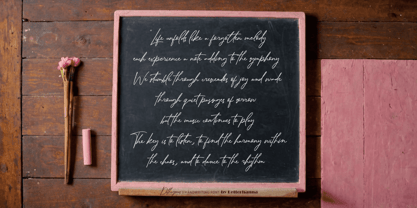 "Life unfolds like a forgotten melody
each experience a note adding to the symphony
We stumble through crescendos of joy and wade
through quiet passages of sorrow
but the music continues to play
The key is to listen, to find the harmony within
the chaos, and to dance to the rhythm